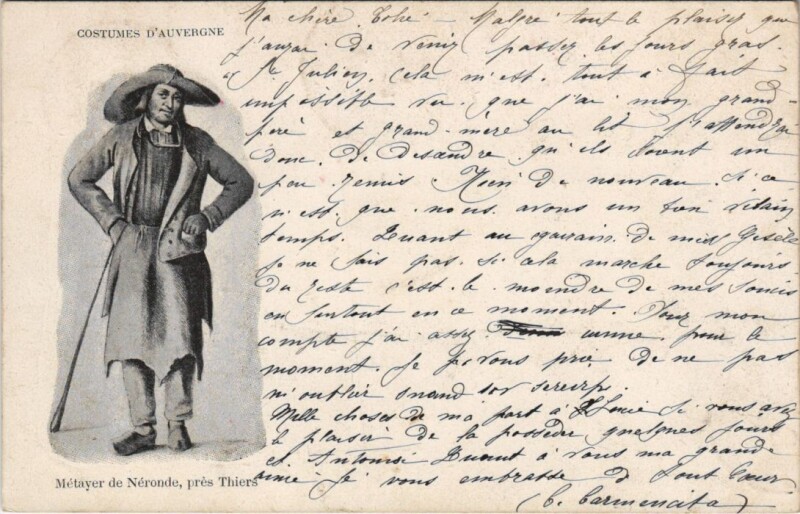 COSTUMES D'AUVERGNE
Ma chère Malgré tout le plaisir que
j'aurai de venir passer les jours gras
St Julien, cela m'est tout à fait
impossible vu que j'ai mon grand-
père et grand-mère au lit J'attendrai
donc de descendre qu'ils soient un
peu remis Rien de nouveau si ce
n'est que nous avons un bien vilain
temps. Quant au de miss Gisèle
Je ne sais pas si cela marche toujours
du reste c'est le moindre de mes soucis
en surtout en ce moment. Pour mon
compte j'ai assez pour le
moment. Je vous prie de ne pas
m'oublier
Mille choses de ma part à si vous avez
le plaisir de la posséder quelques jours
et Quant à vous ma grande
amie je vous embrasse de tout cœur
Carmencita
Métayer de Néronde, près Thiers